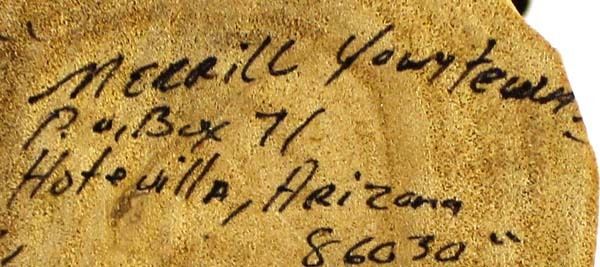 MERRill Yowytewa
P.O. Box 71
Hotevilla, ARizona
86030"